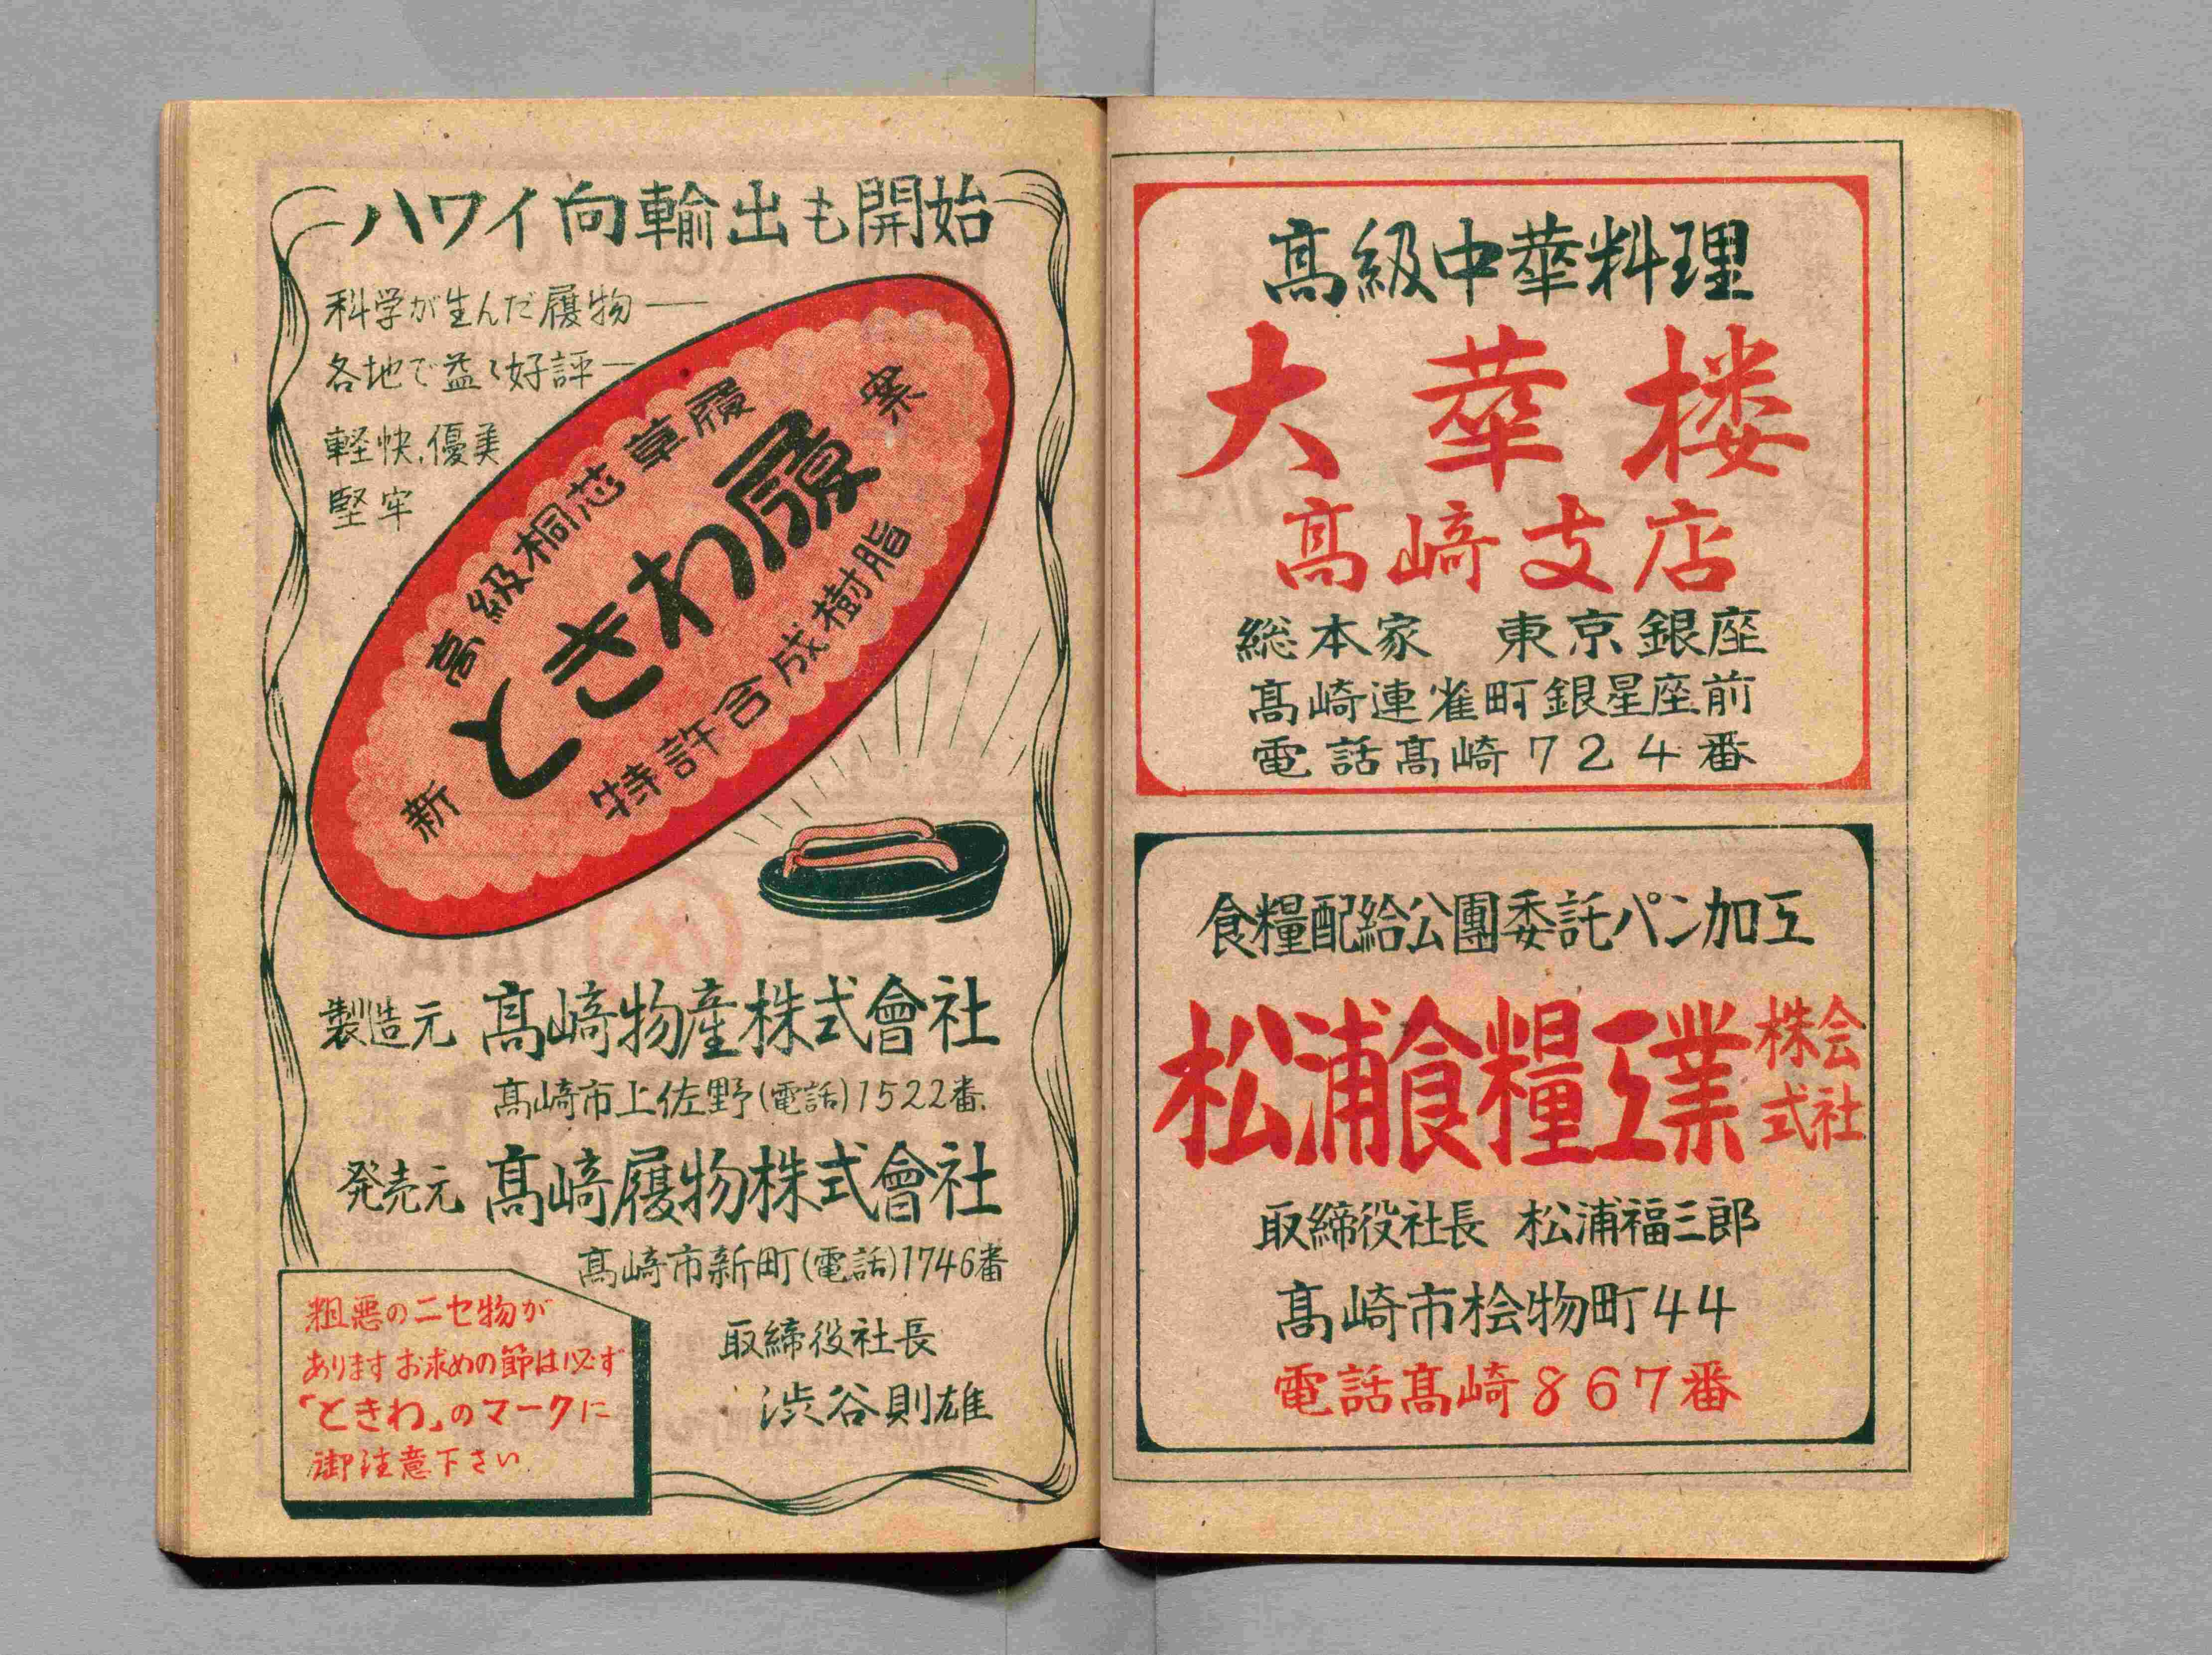 ハワイ向輸出も開始
科学が生んだ履物——
各地で益々好評—
軽快、優美
堅牢
高級桐芯草履
新案
ときわ履
特許合成樹脂
製造元 髙﨑物産株式會社
髙﨑市上佐野(電話)1522番.
発売元 髙﨑履物株式會社
髙﨑市新町(電話)1746番
取締役社長
渋谷則雄
粗悪のニセ物が
あります お求めの節は必ず
「ときわ」のマークに
御注意下さい
髙級中華料理
大華楼
髙﨑支店
総本家 東京銀座
髙﨑連雀町銀星座前
電話髙﨑724番
食糧配給公團委託パン加工
松浦食糧工業株式会社
取締役社長 松浦福三郎
髙﨑市桧物町44
電話髙﨑867番